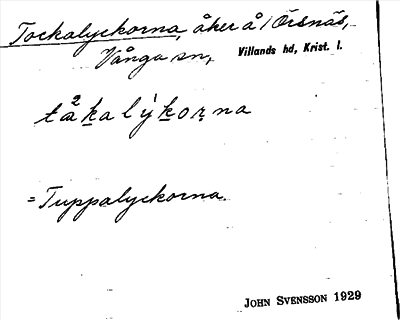 Tockalyckorna, åker å Örsnäs,
Vånga sn, Villands hd, Krist. l.
tåkalýkorna
= Tuppalyckorna.
JOHN SVENSSON 1929